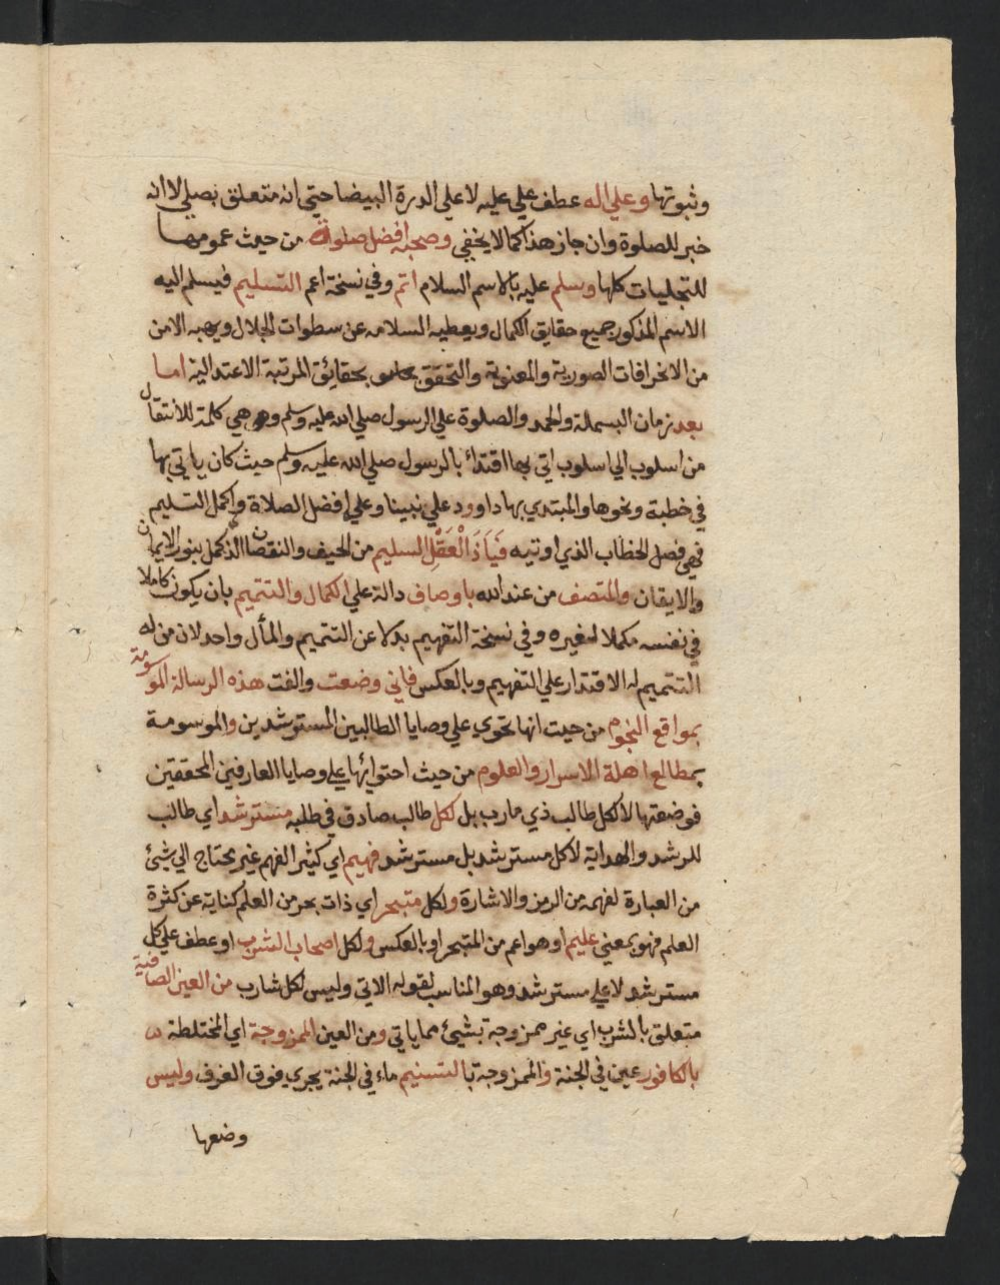 وثبوتها وعلي اله عطف علي عليه لا علي الدرة البيضا حتي انه متعلق بصلي لا انه
خبر للصلوة وان جاز هذا كما لا يخفي وصحبه افضل صلواة من حيث عمومها
للتجليات كلها وسلم عليه بالاسم السلام اتم وفي نسخة اعم التسليم فيسلم اليه
الاسم المذكور جميع حقايق الكمال ويعطيه السلامه عن سطوات الجلال ويهبه الامن
من الانحرافات الصورية والمعنوية والتحقق بحقائق المرتبة الاعتدالية اما
بعد زمان البسملة والحمد والصلوة علي الرسول صلي الله عليه وسلم وهي كلمة للانتقال
من اسلوب الي اسلوب اتي بها اقتداء بالرسول صلي الله عليه وسلم حيث كان ياتي بها
في خطبة ونحوها والمبتدي بها داوود علي نبينا وعلي افضل الصلاة واكمل التسليم
فهي فصل الخطاب الذي اوتيه فيا ذا العقل السليم من الحيف والنقصان الذ كمل بنور الايمان
والايقان والمتصف من عند الله باوصاف دالة علي الكمال والتتميم بان يكون كاملا
في نفسه مكملا لغيره وفي نسخة التفهيم بدلا عن التتميم والمأل واحد لان من له
التتميم له الاقتدار علي التفهيم وبالعكس فاني وضعت والفت هذه الرسالة الموسومة
بمواقع النجوم من حيث انها تحوي علي وصايا الطالبين المسترشدين والموسومة
بمطالع اهلة الاسرار والعلوم من حيث احتوائها علي وصايا العارفين المحققين
فوضعتها لا لكل طالب ذي مارب بل لكل طالب صادق في طلبه مسترشد اي طالب
للرشد والهداية لا كل مسترشد بل مسترشد فهيم اي كثير الفهم غير يحتاج الي شئ
من العبارة لفهمه من الرمز والاشارة ولكل متبحر اي ذات بحر من العلم كناية عن كثرة
العلم فهو بمعني عليم او هو اعم من المتبحر او بالعكس ولكل اصحاب الشرب او عطف علي كل
مسترشد لا علي مسترشد وهو المناسب لقوله الاتي وليس لكل شارب من العين الصافية
متعلق بالشرب اي غير ممزوجة بشيئ مما ياتي ومن العين الممزوجة اي المختلطة
بالكافور عين في الجنة والممزوجة بالتسنيم ماء في الجنة يجري فوق الغرف وليس
وضعها